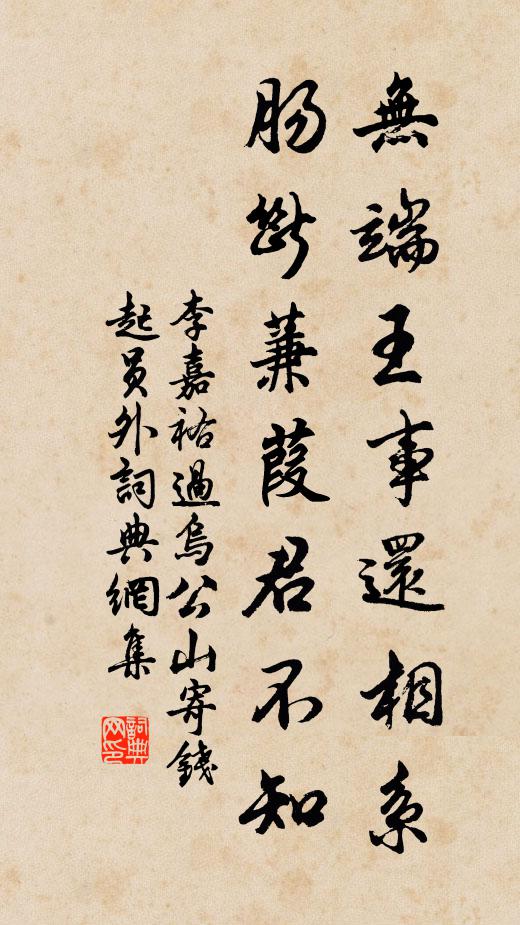 無端王事還相系
腸斷蒹葭君不知
李嘉祐過烏公山寄錢
起員外詞典網集
詞典網印